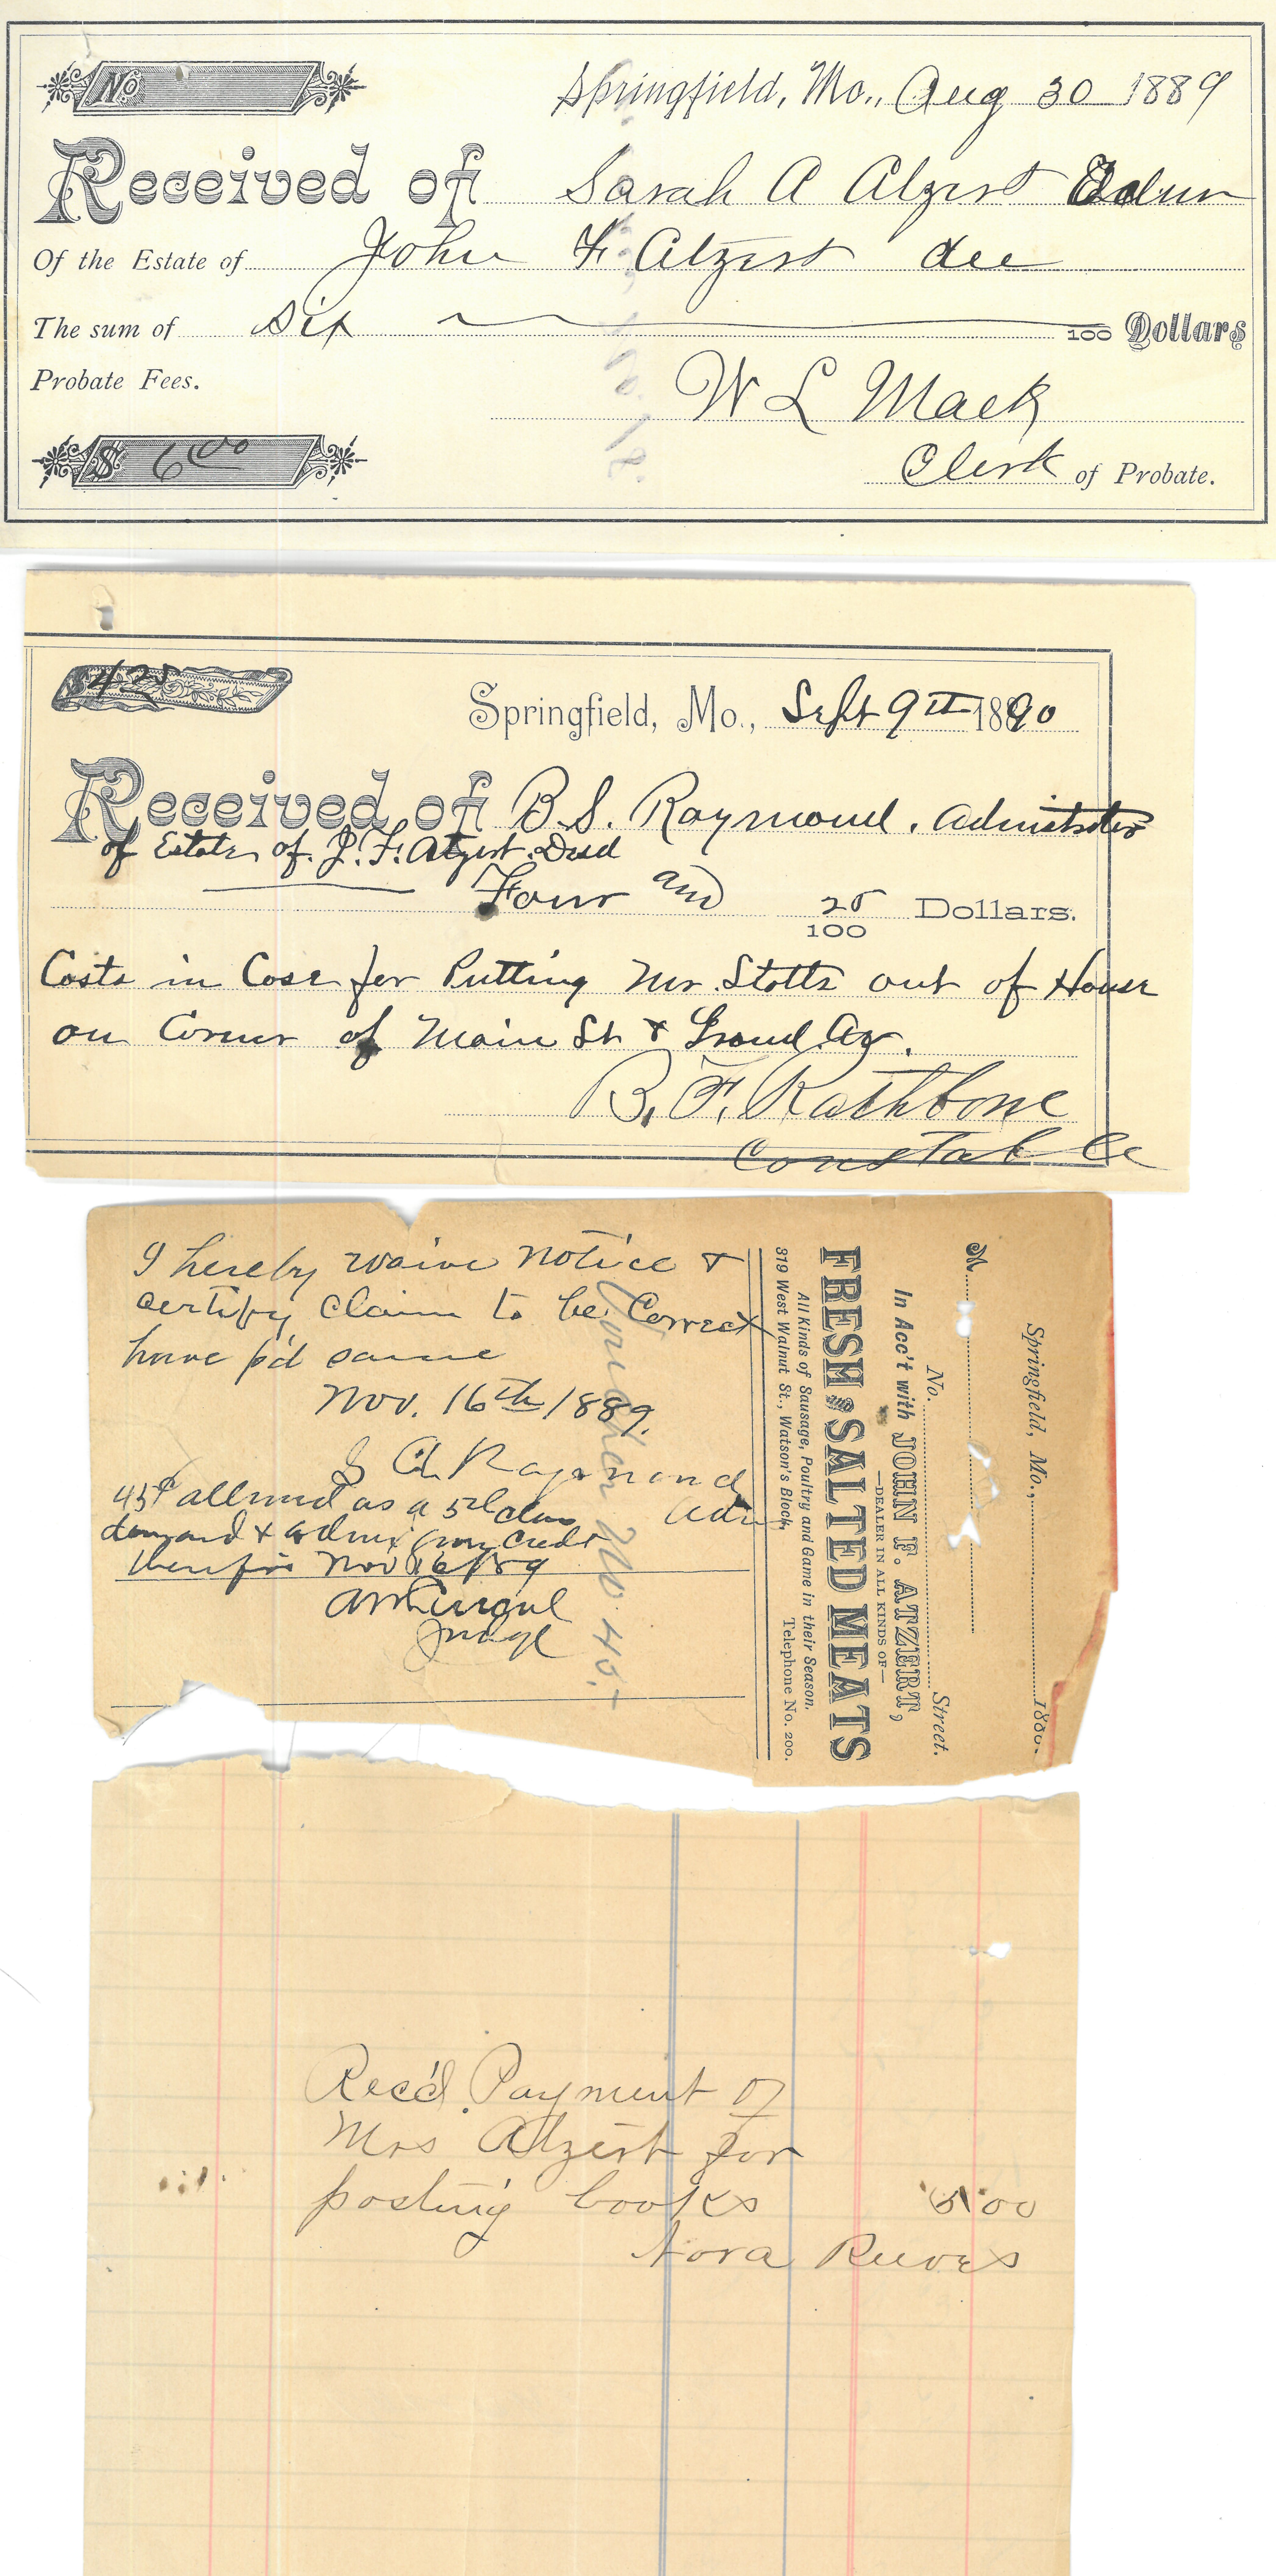 No.
Springfield, Mo., Aug 30 1889
Received of Sarah A Atzert Admr
Of the Estate of John F Atzert dec
The sum of Six 100 Dollars
Probate Fees.
W L Mack
$ 6 00
Clerk of Probate.
$4 25
Springfield, Mo., Sept 9th 1890
Received of B.S. Raymond, Administrator
of Estate of J. F. Atzert Decd
Four and 25/100 Dollars.
Costs in Case for Putting Mr. Stotts out of House
on Corner of Main St & Grand Av.
B. F. Rathbone
Constable
I hereby waive notice &
certify claim to be Correct
have p'd same
Nov. 16th 1889.
S A Raymond
Adm
allowed as a 5th class
demand & Admx given credit
therefor Nov 16/89
Judge
Voucher No. 45.
Springfield, Mo., 188
M
No. Street.
In Acc't with JOHN F. ATZERT,
—DEALER IN ALL KINDS OF—
FRESH & SALTED MEATS
All Kinds of Sausage, Poultry and Game in their Season.
319 West Walnut St., Watson's Block, Telephone No. 200.
Rec'd. Payment of
Mrs Atzert for
posting books 5.00
Nora Reeves